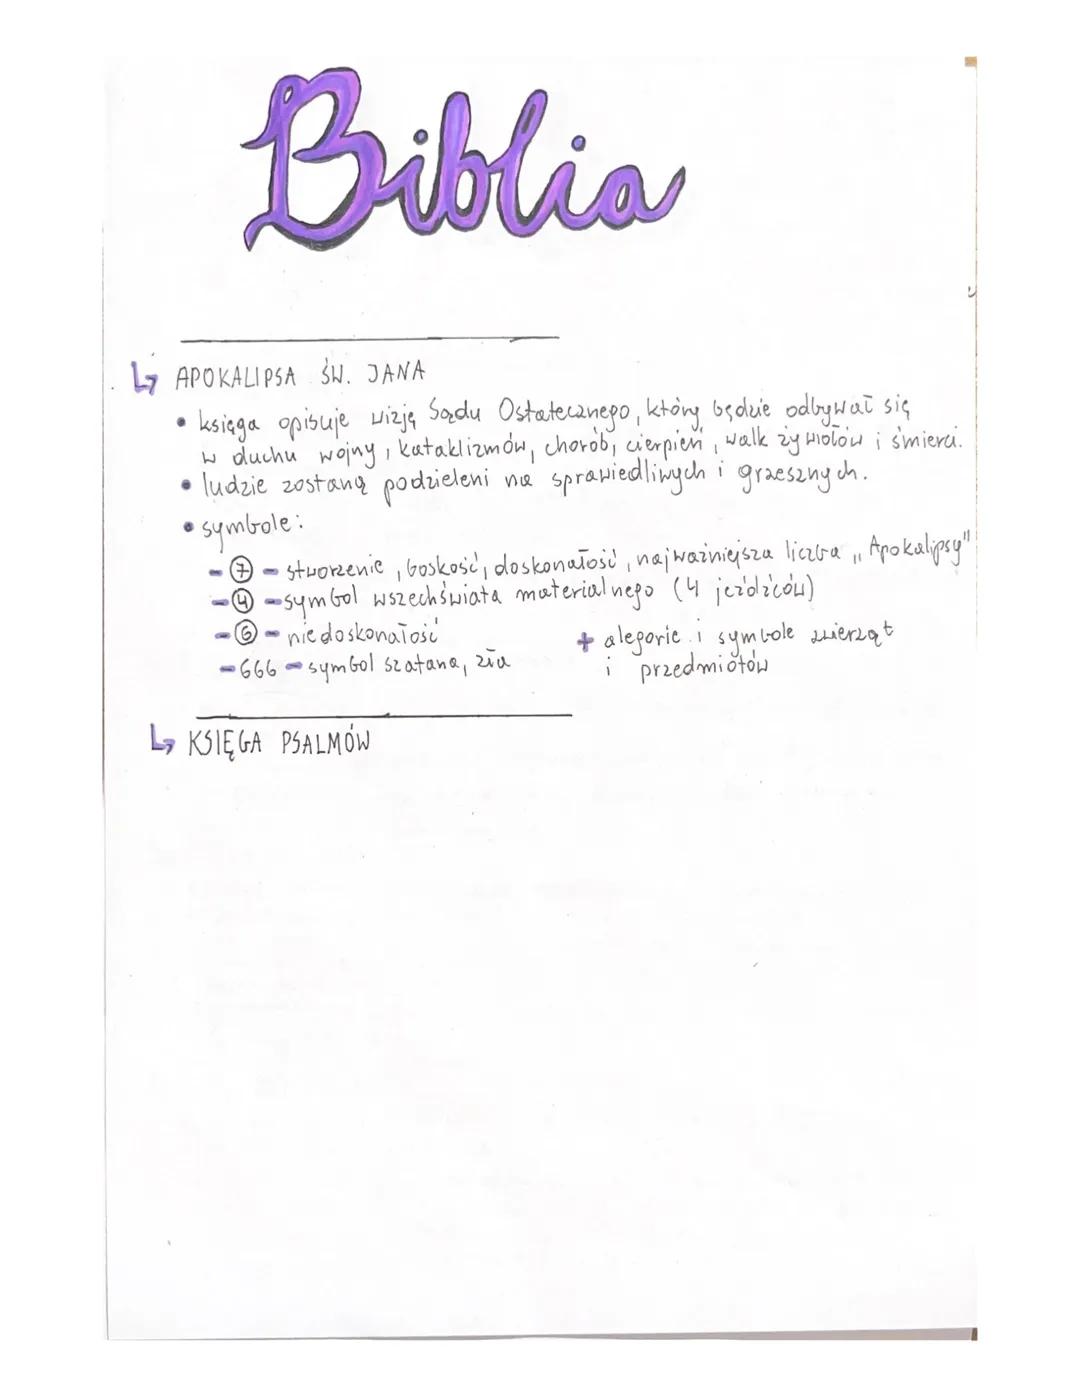 Biblia
APOKALIPSA ŚW. JANA
• księga opisuje wizję Sądu Ostatecznego, który będzie odbywał się
w duchu wojny, kataklizmów, chorób, cierpień, walk żywiołów i śmierci.
• ludzie zostaną podzieleni na sprawiedliwych i grzesznych.
• symbole:
- 7 - stworzenie, boskość, doskonałość, najważniejsza liczba „Apokalipsy"
- 4 - symbol wszechświata materialnego (4 jeźdźców)
- 6 - niedoskonałość
- 666 - symbol szatana, zła
+ alegorie i symbole zwierząt
i przedmiotów
KSIĘGA PSALMÓW